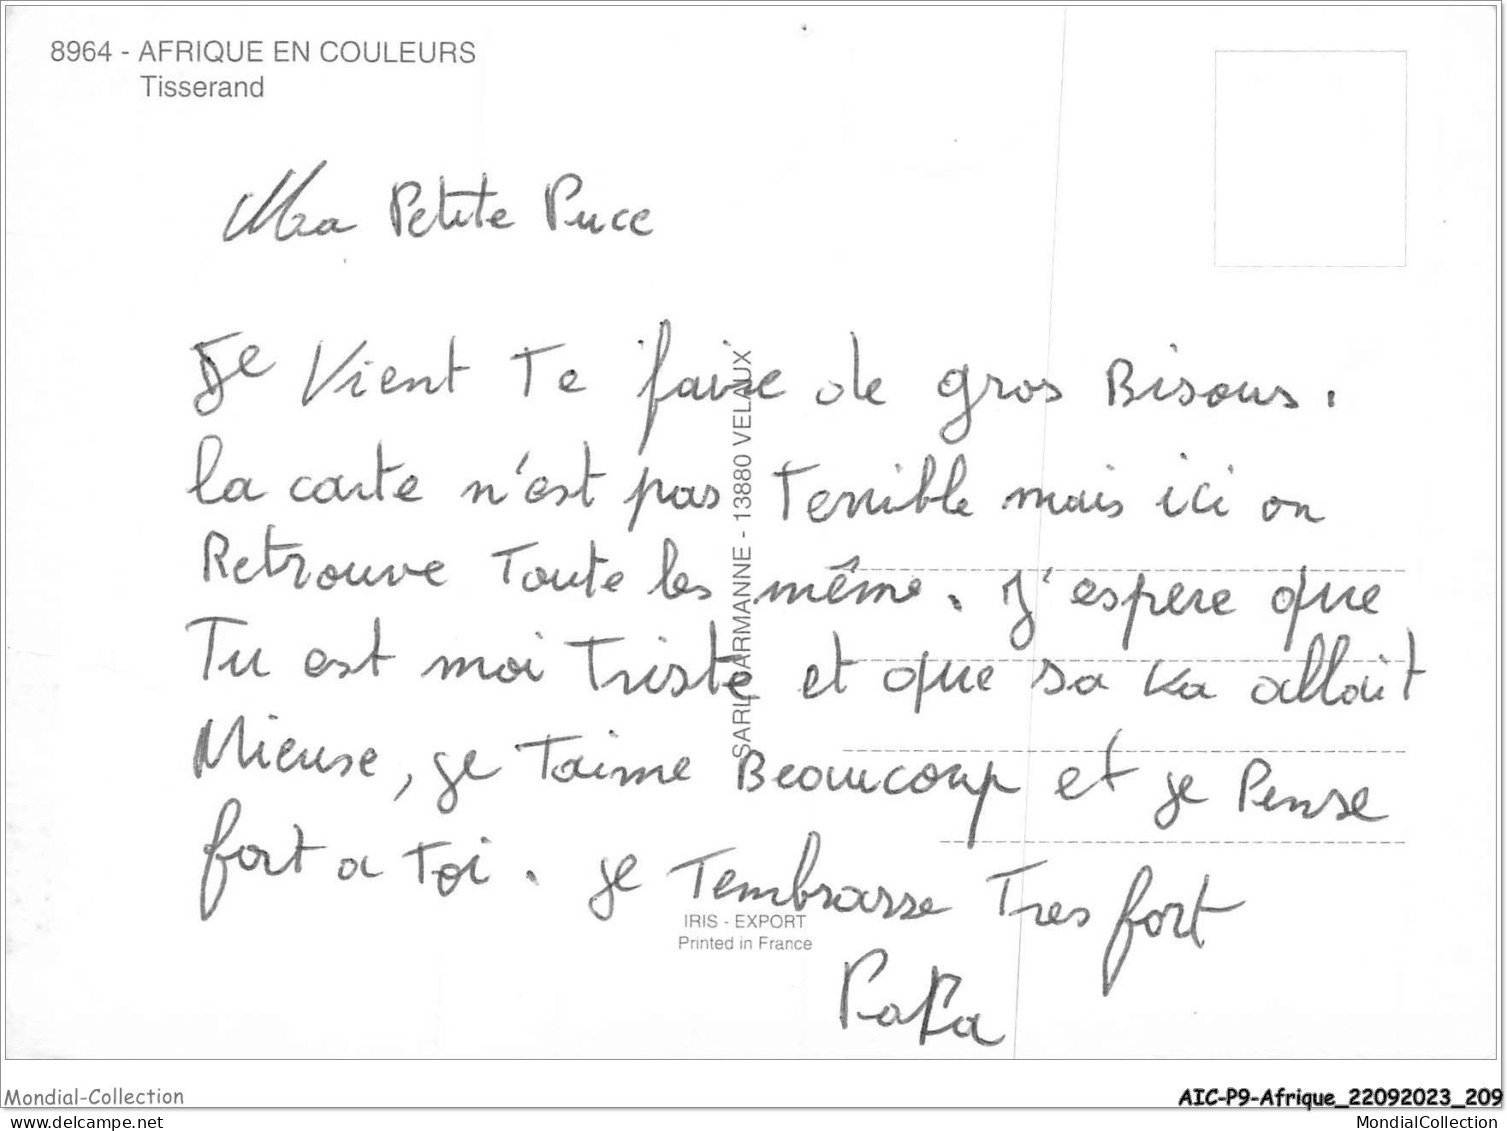 8964 - AFRIQUE EN COULEURS
Tisserand
Ma Petite Puce
Je Vient Te faire de gros Bisous.
la carte n'est pas Terrible mais ici on
Retrouve Toute les même. J'espere que
Tu est moi Triste et que sa va allait
Mieuse, je Taime Beaucoup et je Pense
fort a Toi. je Tembrasse Tres fort
PaPa
SARL DARMANNE - 13880 VELAUX
IRIS - EXPORT
Printed in France
Mondial-Collection
AIC-P9-Afrique_22092023_209
www.delcampe.net
MondialCollection